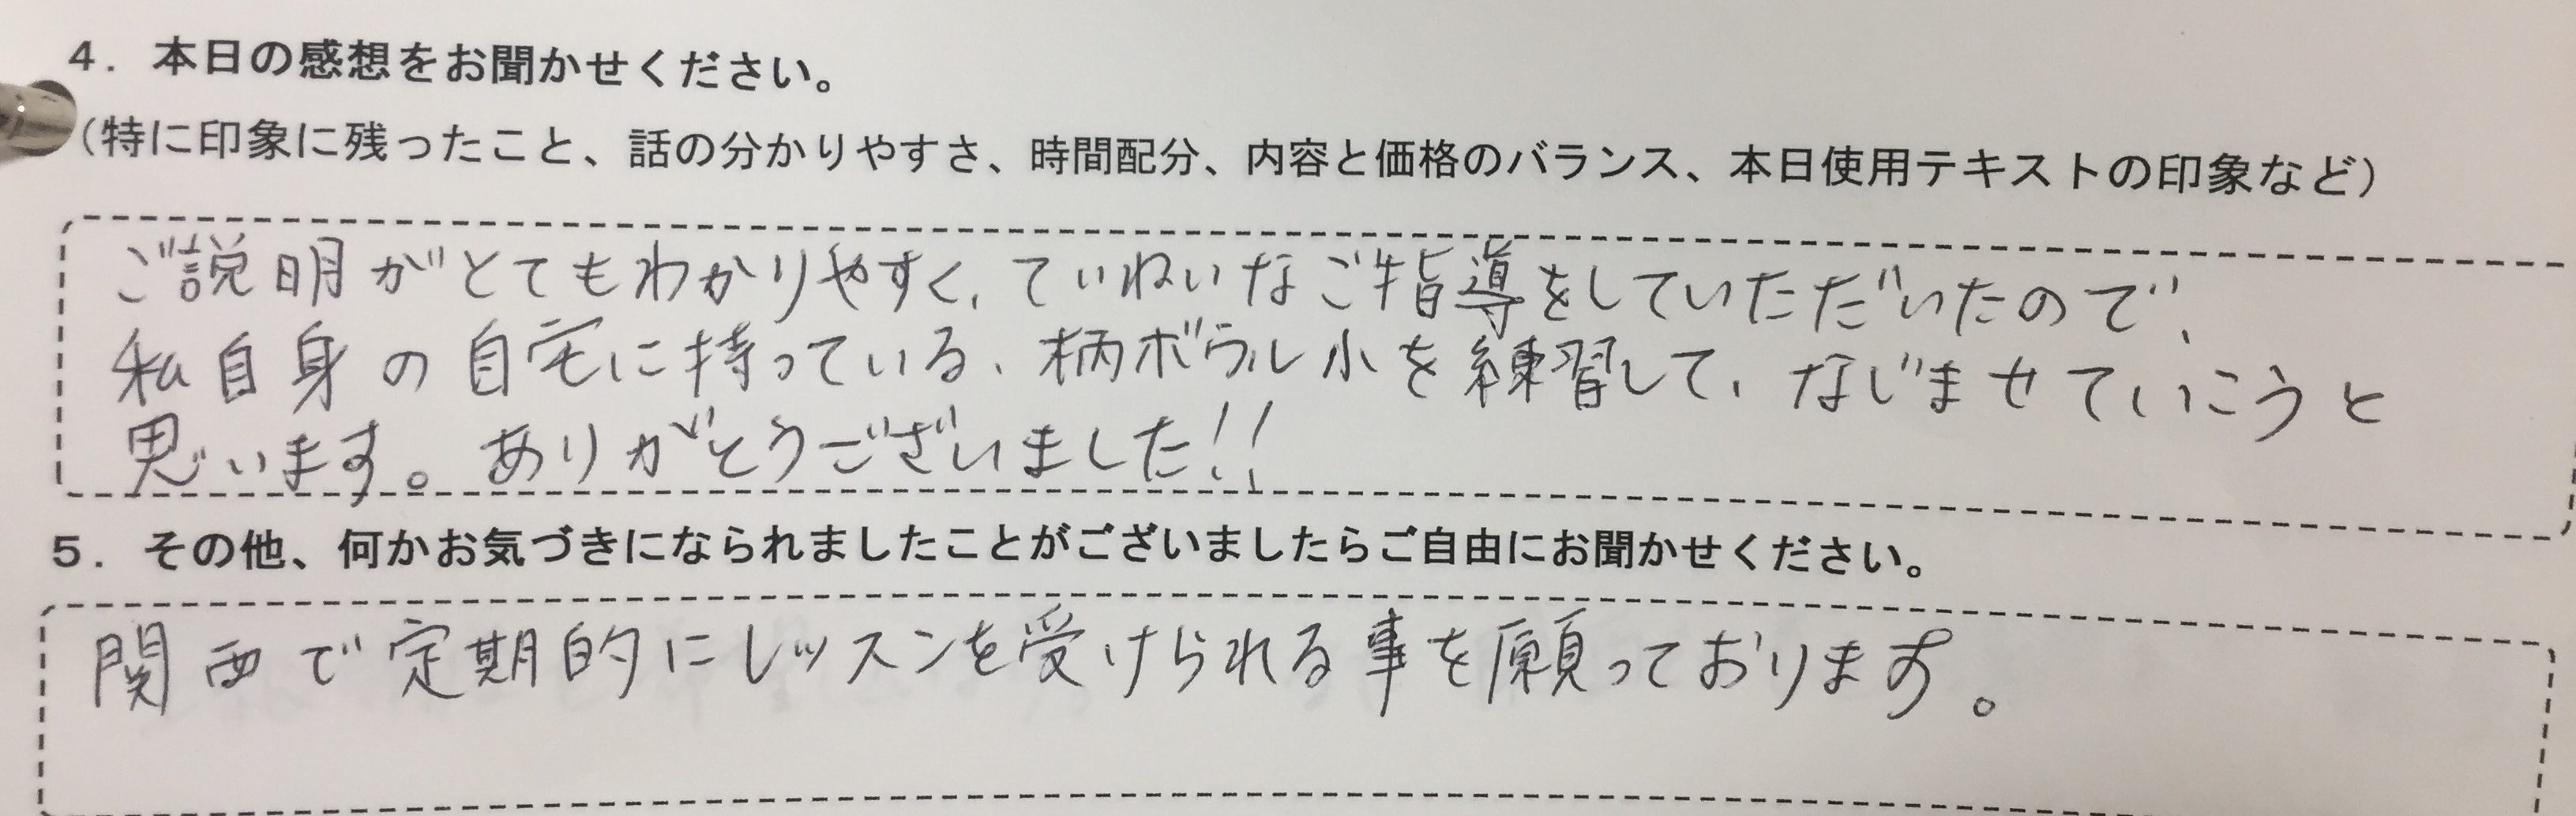 4．本日の感想をお聞かせください。
（特に印象に残ったこと、話の分かりやすさ、時間配分、内容と価格のバランス、本日使用テキストの印象など）
ご説明がとてもわかりやすく、ていねいなご指導をしていただいたので、
私自身の自宅に持っている、柄ボウル小を練習して、なじませていこうと
思います。ありがとうございました!!
5．その他、何かお気づきになられましたことがございましたらご自由にお聞かせください。
関西で定期的にレッスンを受けられる事を願っております。